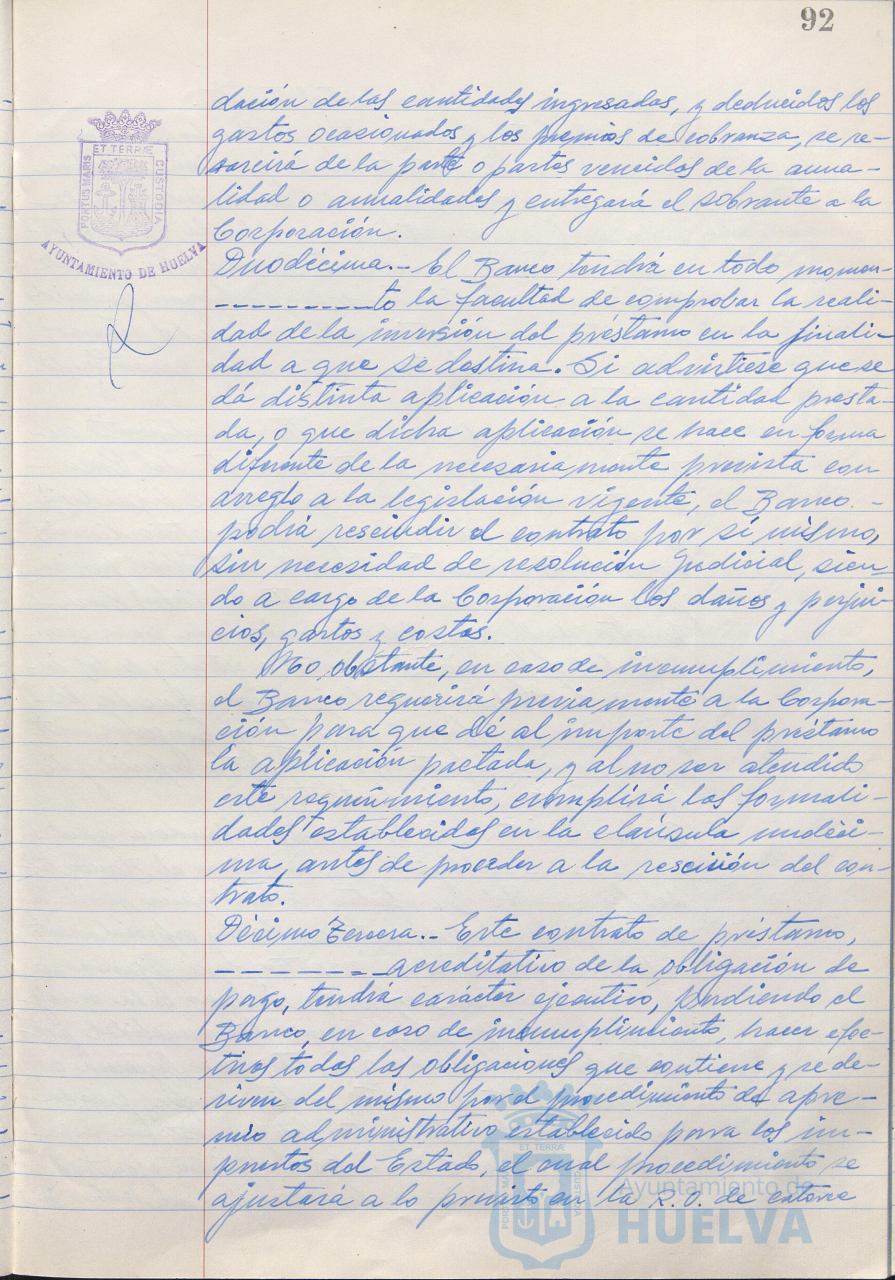 92
dación de las cantidades ingresadas, y deducidos los
gastos ocasionados y los premios de cobranza, se re-
sarcirá de la parte o partes vencidas de la anua-
lidad o anualidades y entregará el sobrante a la
Corporación.
PORTUS MARIS ET TERRÆ CUSTODIA
AYUNTAMIENTO DE HUELVA
Duodécima.- El Banco tendrá en todo momen-
----------to la facultad de comprobar la reali-
dad de la inversión del préstamo en la finali-
dad a que se destina. Si advirtiese que se
dá distinta aplicación a la cantidad presta-
da, o que dicha aplicación se hace en forma
diferente de la necesariamente prevista con
arreglo a la legislación vigente, el Banco.-
podrá rescindir el contrato por sí mismo,
sin necesidad de resolución judicial, sien-
do a cargo de la Corporación los daños y perjui-
cios, gastos y costas.
No obstante, en caso de incumplimiento,
el Banco requerirá previamente a la Corpora-
ción para que dé al importe del préstamo
la aplicación pactada, y al no ser atendido
este requerimiento, cumplirá las formali-
dades establecidas en la claúsula undéci-
ma, antes de proceder a la rescisión del con-
trato.
Décimo Tercera.- Este contrato de préstamo,
--------acreditativo de la obligación de
pago, tendrá carácter ejecutivo, pudiendo el
Banco, en caso de incumplimiento, hacer efec-
tivas todas las obligaciones que contiene y se de-
riven del mismo por el procedimiento de apre-
mio administrativo establecido para los im-
puestos del Estado, el cual procedimiento se
ajustará a lo previsto en la R.O. de catorce
ET TERRÆ
PORTUS MARIS
CUSTODIA
Ayuntamiento de
HUELVA